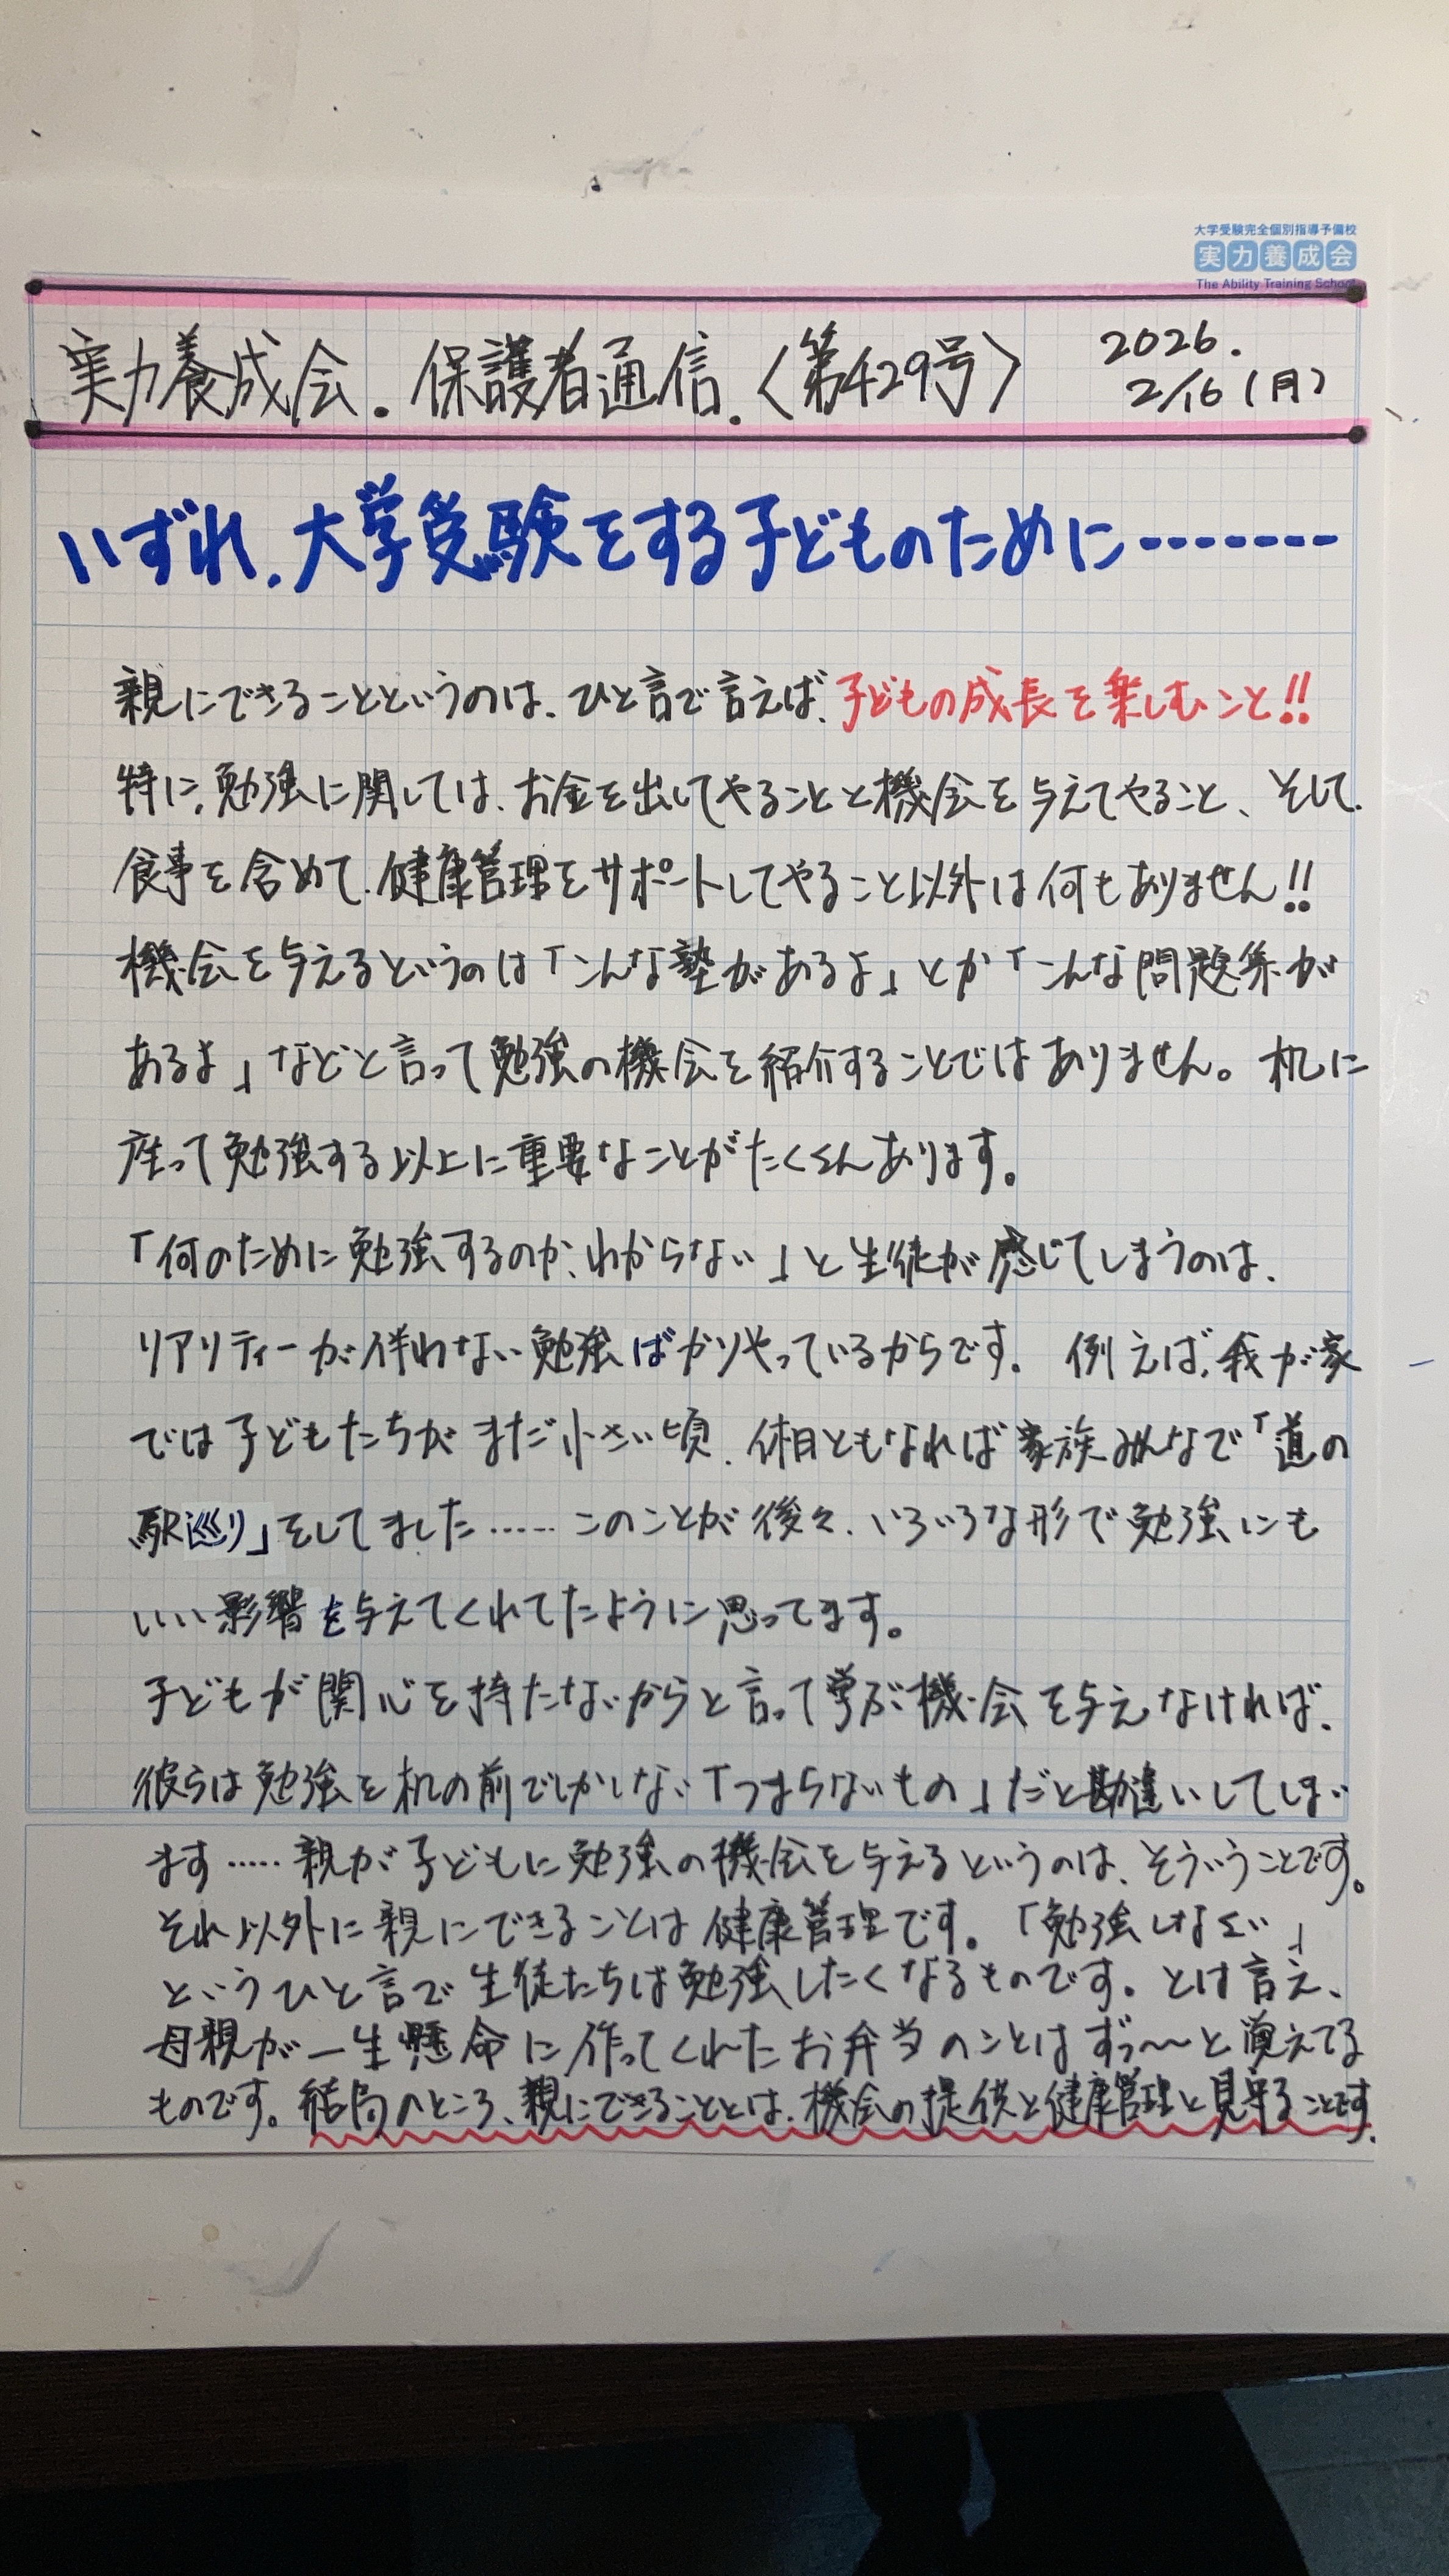 大学受験完全個別指導予備校
実力養成会
The Ability Training School
実力養成会.保護者通信.〈第429号〉
2026.
2/16(月)
いずれ、大学受験をする子どものために-------
親にできることというのは、ひと言で言えば、子どもの成長を楽しむこと!!
特に、勉強に関しては、お金を出してやることと機会を与えてやること、そして、
食事を含めて、健康管理をサポートしてやること以外は何もありません!!
機会を与えるというのは「こんな塾があるよ」とか「こんな問題集が
あるよ」などと言って勉強の機会を紹介することではありません。机に
座って勉強する以上に重要なことがたくさんあります。
「何のために勉強するのか、わからない」と生徒が感じてしまうのは、
リアリティーが伴わない勉強ばかりやっているからです。例えば、我が家
では子どもたちがまだ小さい頃、休日ともなれば家族みんなで「道の
駅巡り」をしてました……このことが後々、いろいろな形で勉強にも
いい影響を与えてくれてたように思ってます。
子どもが関心を持たないからと言って学ぶ機会を与えなければ、
彼らは勉強を机の前でしかしない「つまらないもの」だと勘違いしてしまい
ます……親が子どもに勉強の機会を与えるというのは、そういうことです。
それ以外に親にできることは健康管理です。「勉強しなさい」
というひと言で生徒たちは勉強したくなるものです。とは言え、
母親が一生懸命に作ってくれたお弁当のことはずっ〜と覚えてる
ものです。結局のところ、親にできることとは、機会の提供と健康管理と見守ることです.